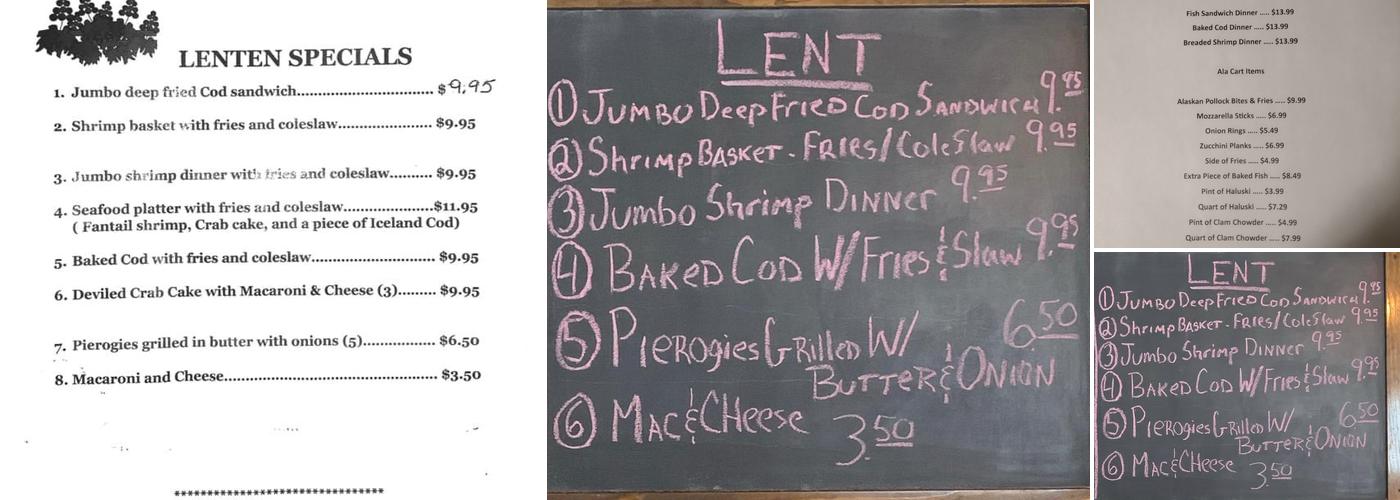 LENTEN SPECIALS
1. Jumbo deep fried Cod sandwich................................ $9.95
2. Shrimp basket with fries and coleslaw...................... $9.95
3. Jumbo shrimp dinner with fries and coleslaw.......... $9.95
4. Seafood platter with fries and coleslaw.....................$11.95
( Fantail shrimp, Crab cake, and a piece of Iceland Cod)
5. Baked Cod with fries and coleslaw............................. $9.95
6. Deviled Crab Cake with Macaroni & Cheese (3)......... $9.95
7. Pierogies grilled in butter with onions (5).................. $6.50
8. Macaroni and Cheese.................................................... $3.50
*********************************
LENT
1 JUMBO DEEP FRIED COD SANDWICH 9.95
2 Shrimp BASKET - FRIES/ColeSlaw 9.95
3 Jumbo Shrimp DINNER 9.95
4 BAKED COD W/ FRIES & Slaw 9.95
5 PIEROgies GRILLED W/ 6.50
BUTTER & ONION
6 MAC & CHeese 3.50
Fish Sandwich Dinner ..... $13.99
Baked Cod Dinner ..... $13.99
Breaded Shrimp Dinner ..... $13.99
Ala Cart Items
Alaskan Pollock Bites & Fries ..... $9.99
Mozzarella Sticks ..... $6.99
Onion Rings ..... $5.49
Zucchini Planks ..... $6.99
Side of Fries ..... $4.99
Extra Piece of Baked Fish ..... $8.49
Pint of Haluski ..... $3.99
Quart of Haluski ..... $7.29
Pint of Clam Chowder ..... $4.99
Quart of Clam Chowder ..... $7.99
LENT
1 JUMBO DEEP FRIED COD SANDWICH 9.95
2 Shrimp BASKET - FRIES/ColeSlaw 9.95
3 Jumbo Shrimp DINNER 9.95
4 BAKED COD W/ FRIES & Slaw 9.95
5 PIEROgies GRILLED W/ 6.50
BUTTER & ONION
6 MAC & CHeese 3.50